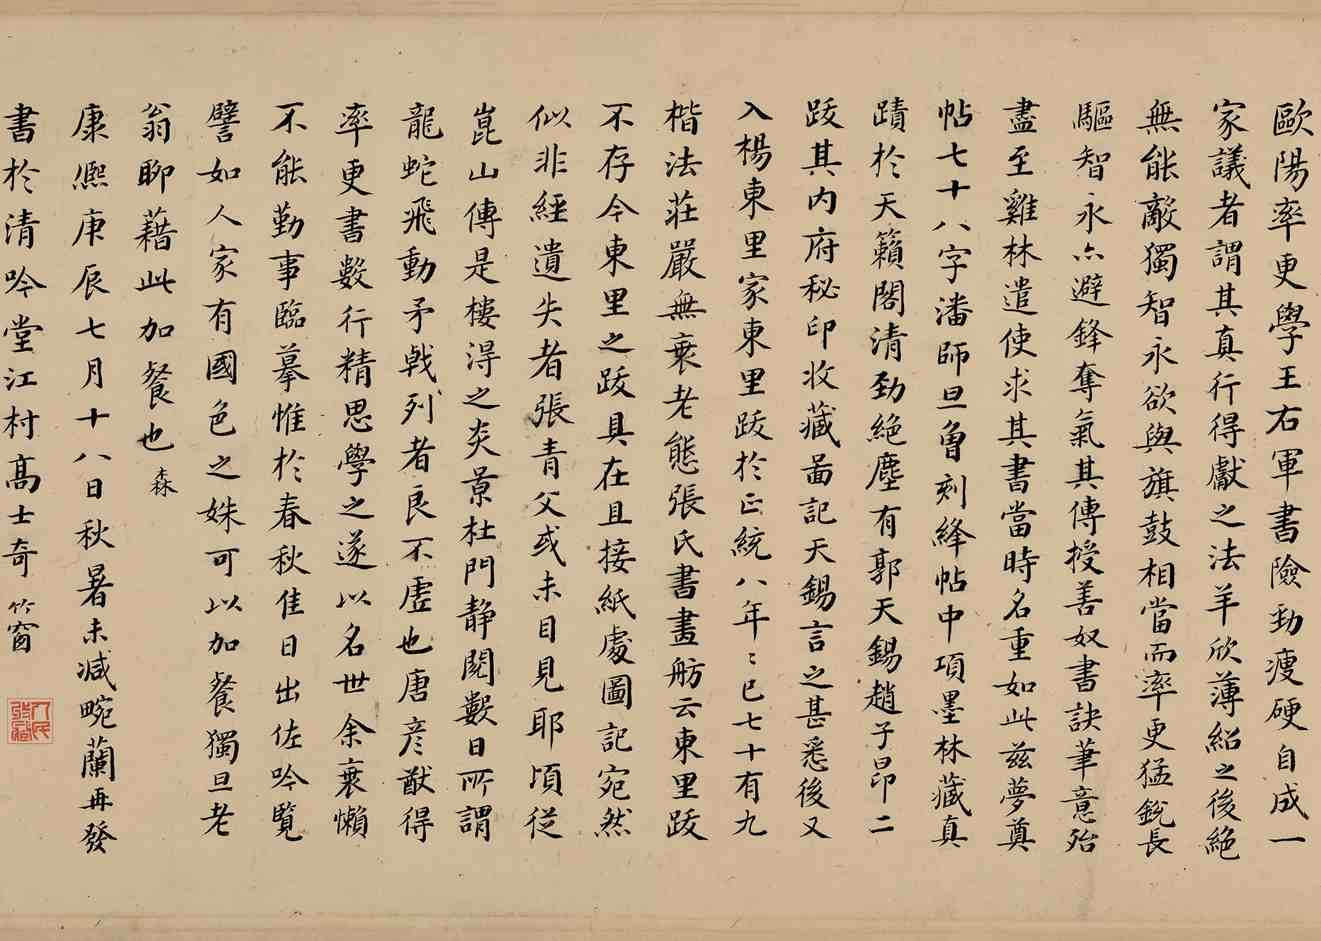 歐陽率更學王右軍書險勁瘦硬自成一
家議者謂其真行得獻之法羊欣薄紹之後絕
無能敵獨智永欲與旗鼓相當而率更猛銳長
驅智永亦避鋒奪氣其傳授善奴書訣筆意殆
盡至雞林遣使求其書當時名重如此茲夢奠
帖七十八字潘師旦曾刻絳帖中項墨林藏真
蹟於天籟閣清勁絕塵有郭天錫趙子昂二
跋其內府秘印收藏啚記天錫言之甚悉後又
入楊東里家東里跋於正統八年〻已七十有九
楷法莊嚴無衰老態張氏書畫舫云東里跋
不存今東里之跋具在且接紙處圖記宛然
似非經遺失者張青父或未目見耶頃從
崑山傳是樓淂之炎景杜門静閱數日所謂
龍蛇飛動矛戟列者良不虛也唐彥猷得
率更書數行精思學之遂以名世余衰懶
不能勤事臨摹惟於春秋佳日出佐吟覽
譬如人家有國色之姝可以加餐獨旦老
翁聊藉此加餐也森
康熙庚辰七月十八日秋暑未减畹蘭再發
書於清吟堂江村高士奇 竹窗